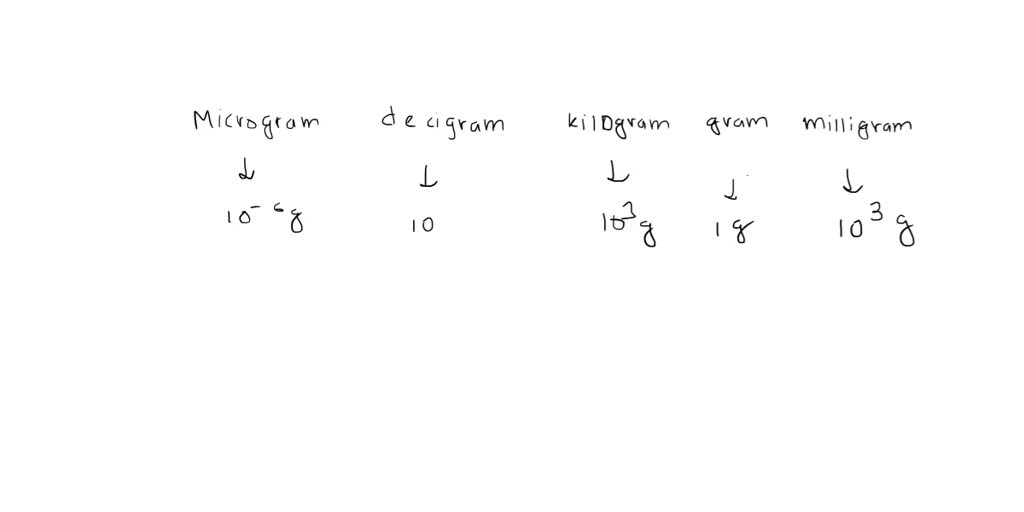 Microgram decigram kilogram gram milligram
↓ ↓ ↓ ↓ ↓
10⁻⁶g 10 10³g 1g 10³g